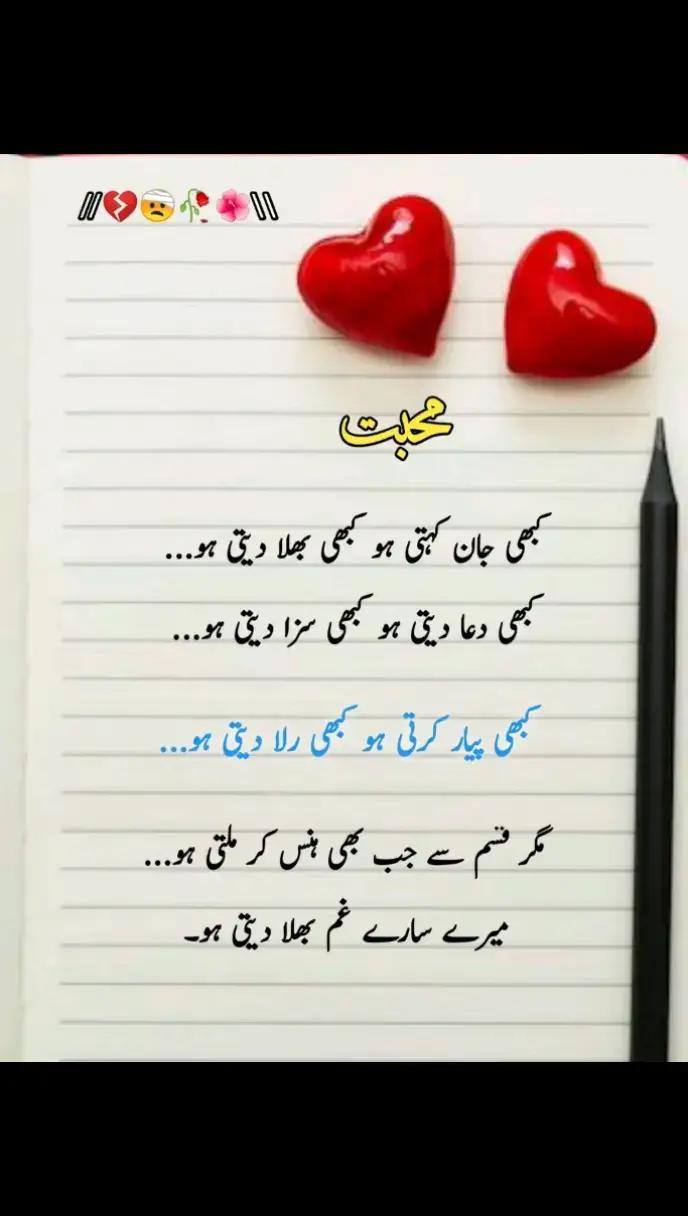 \\💔🤕🥀🌺\\
محبت
کبھی جان کہتی ہو کبھی بھلا دیتی ہو...
کبھی دعا دیتی ہو کبھی سزا دیتی ہو...
کبھی پیار کرتی ہو کبھی رلا دیتی ہو...
مگر قسم سے جب بھی ہنس کر ملتی ہو...
میرے سارے غم بھلا دیتی ہو۔